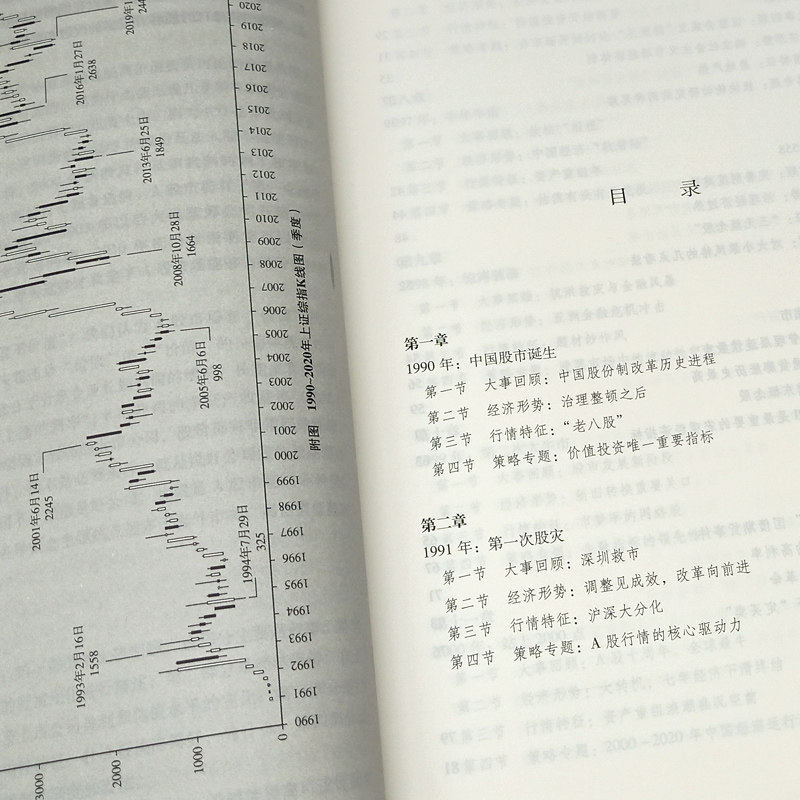 2020
2019
2018
2017
2016
2015
2014
2013
2012
2011
2010
2009
2008
2007
2006
2005
2004
2003
2002
2001
2000
1999
1998
1997
1996
1995
1994
1993
1992
1991
1990
0
1000
2000
3000
2016年1月27日
2638
2013年6月25日
1849
2008年10月28日
1664
2005年6月6日
998
2001年6月14日
2245
1994年7月29日
325
1993年2月16日
1558
附图 1990~2020年上证综指K线图（季度）
目 录
第一章
1990 年：中国股市诞生
第一节 大事回顾：中国股份制改革历史进程
第二节 经济形势：治理整顿之后
第三节 行情特征：“老八股”
第四节 策略专题：价值投资唯一重要指标
第二章
1991 年：第一次股灾
第一节 大事回顾：深圳救市
第二节 经济形势：调整见成效，改革向前进
第三节 行情特征：沪深大分化
第四节 策略专题：A 股行情的核心驱动力